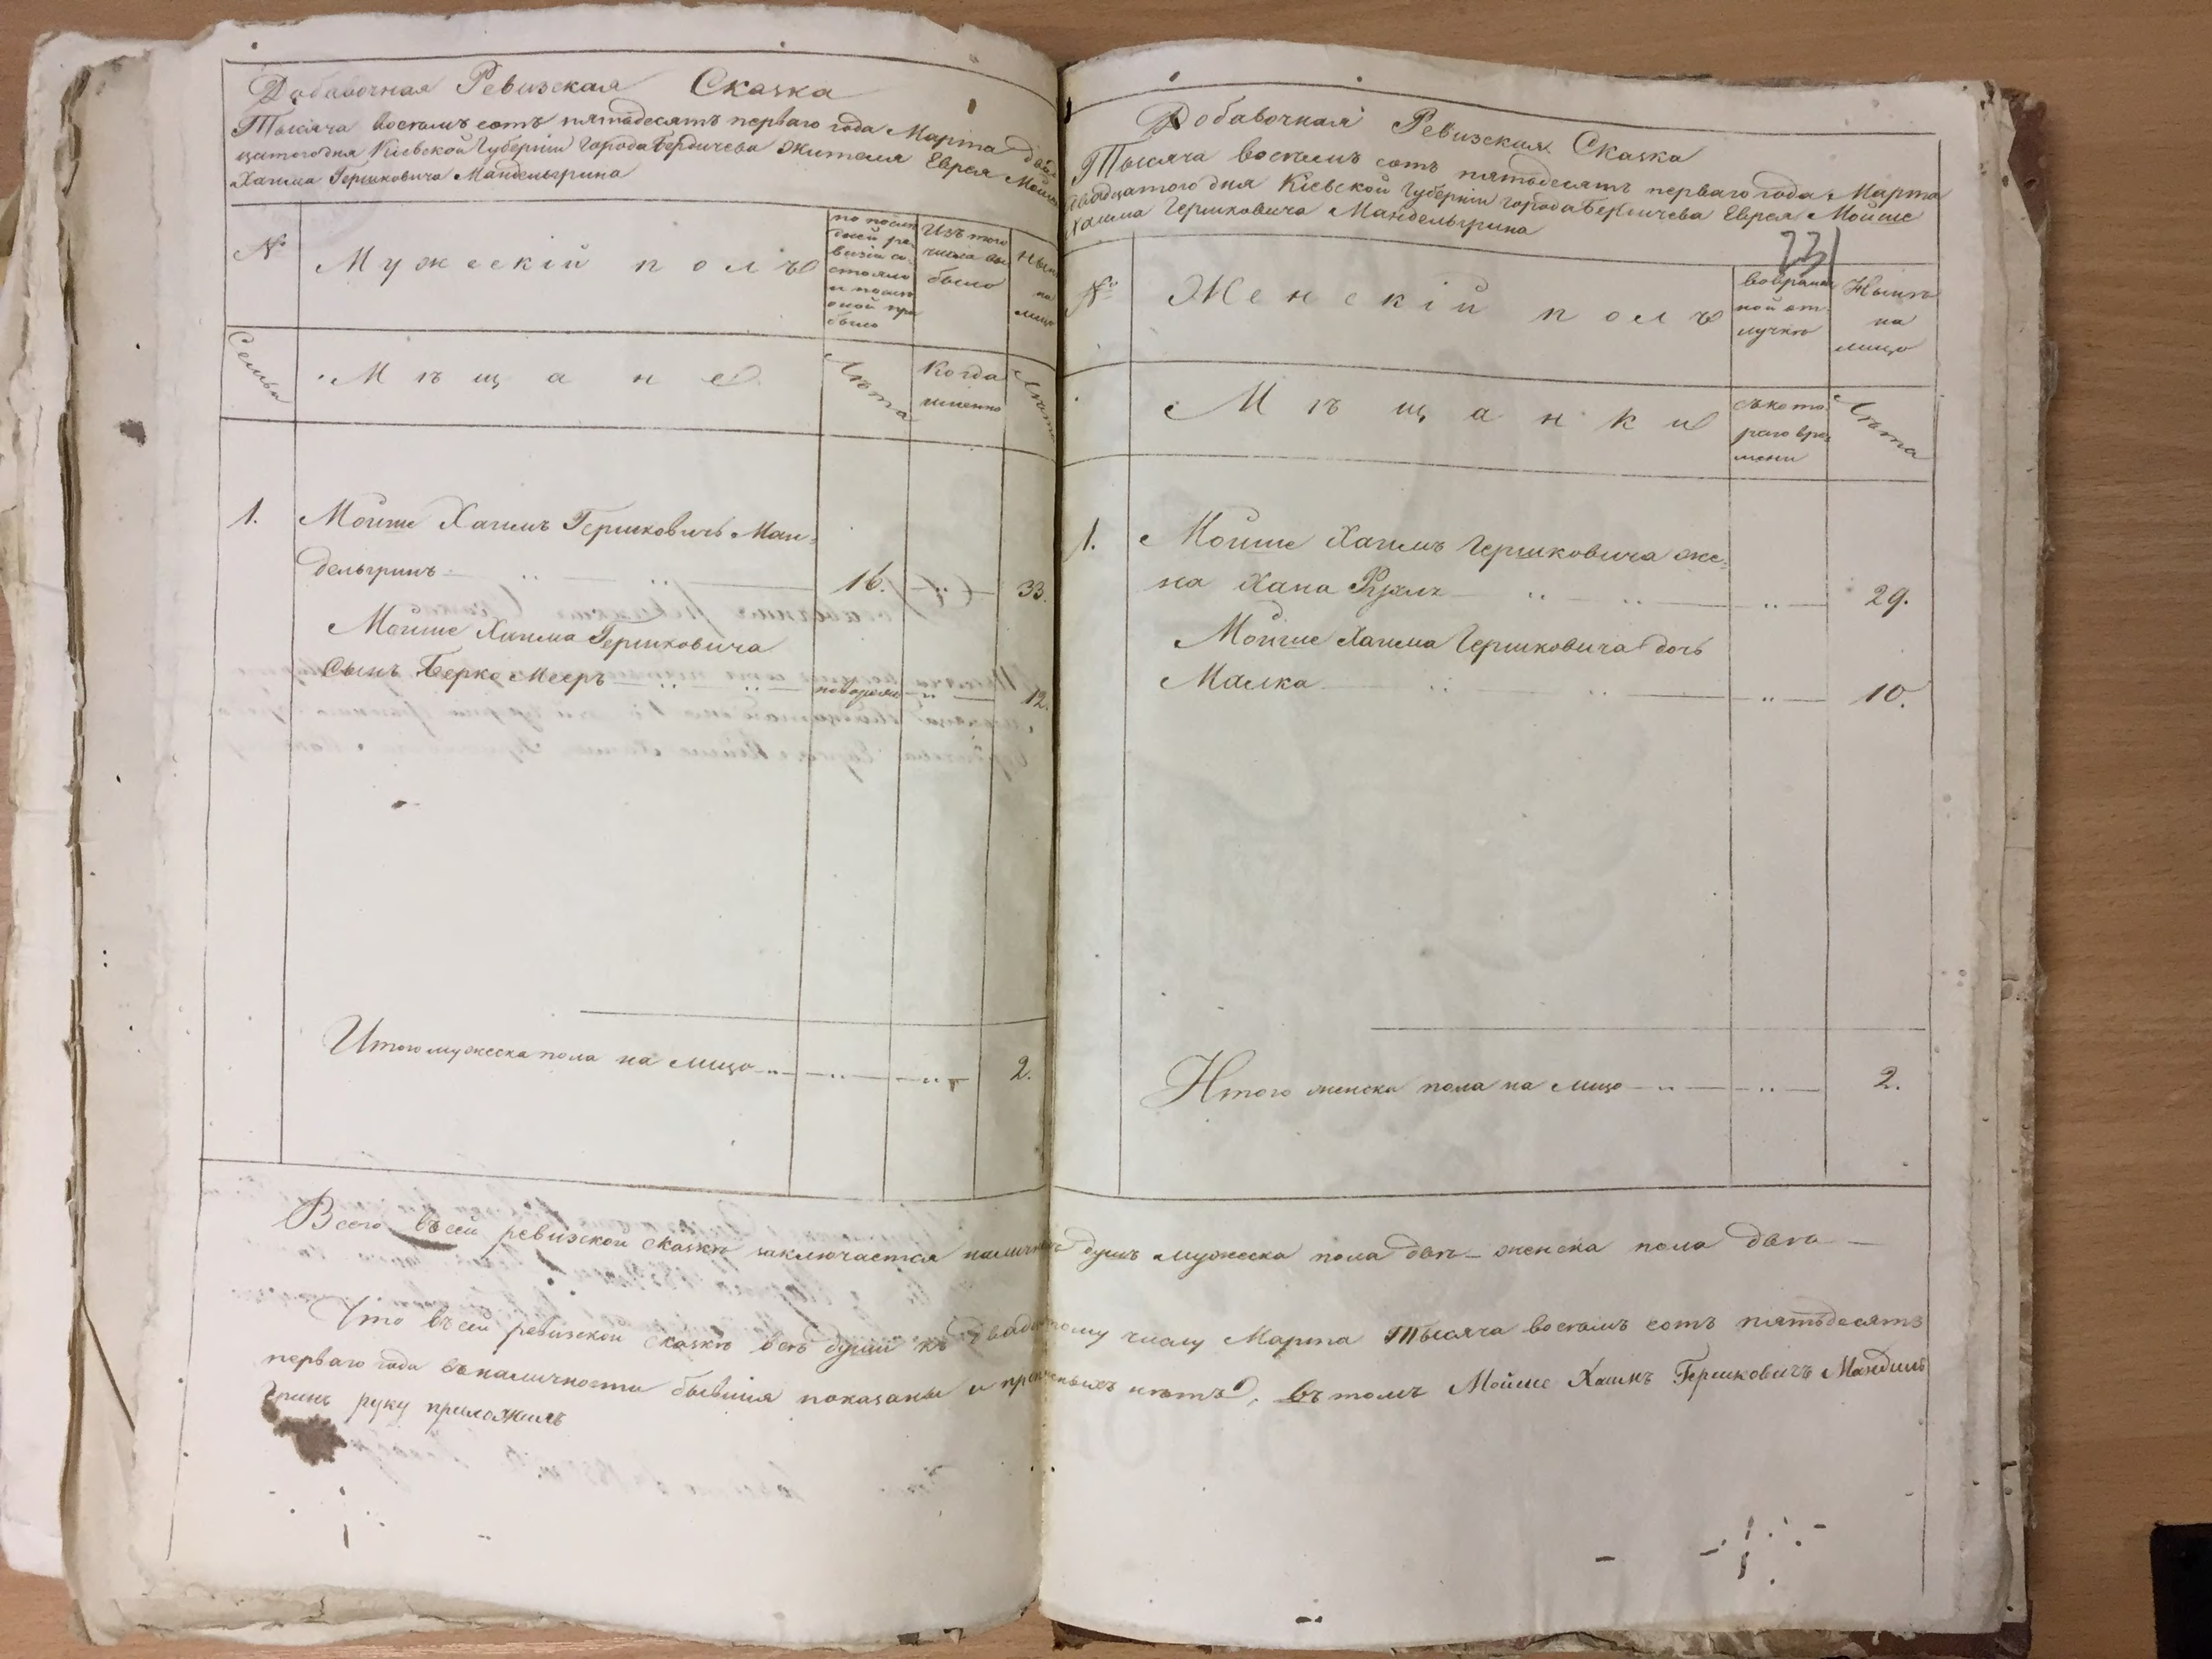 Добавочная Ревизская Сказка
Тысяча восемь сотъ пятьдесятъ перваго года Марта двад
цатого дня Кіевской Губерніи Города Бердичева жителя Еврея Мойше
Хаима Гершковича Мандельгрина
№
Мужескій полъ
по послѣ
дней ре
визіи со
стояло
и послѣ
оной при
было
Изъ того
числа вы
было
Нынѣ
на
лицо
Семьи
Мѣщане
Лѣта
Когда
именно
Лѣта
1.
Мойше Хаимъ Гершковичъ Ман-
дельгринъ
16.
33.
Мойше Хаима Гершковича
Сынъ Берко Мееръ
12.
Итого мужеска пола на лицо
2.
Добавочная Ревизская Сказка
Тысяча восемь сотъ пятьдесятъ перваго года Марта
двадцатого дня Кіевской Губерніи города Бердичева Еврея Мойше
Хаима Гершковича Мандельгрина
231
№
Женскій полъ
во времен
ной от
лучкѣ
Нынѣ
на
лицо
Мѣщанки
съ кото
раго вре
мени
Лѣта
1.
Мойше Хаимъ Гершковича же-
на Хана
29.
Мойше Хаима Гершковича дочь
Малка
10.
Итого женска пола на лицо
2.
Всего въ сей ревизской сказкѣ заключается наличныхъ душъ мужеска пола двѣ женска пола двѣ
Что въ сей ревизской сказкѣ всѣ души къ двадцатому числу Марта Тысяча восемь сотъ пятьдесятъ
перваго года въ наличности бывшія показаны и прописныхъ нѣтъ, въ томъ Мойше Хаимъ Гершковичъ Мандель
гринъ руку приложилъ